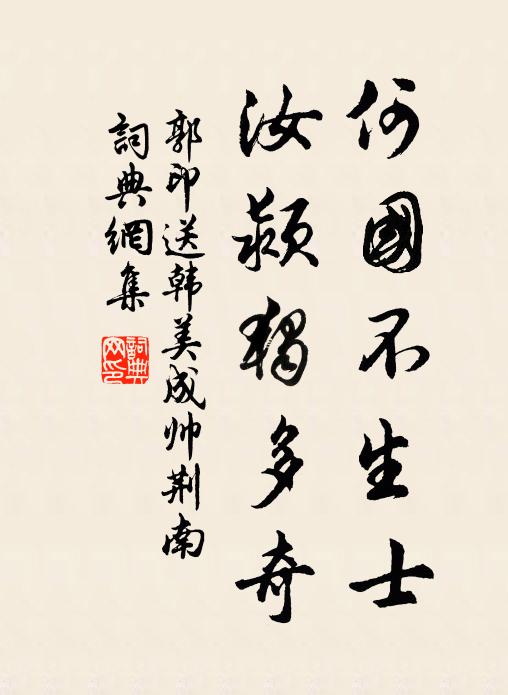 何國不生士
汝颍獨多奇
郭印送韩美成帅荆南
詞典網集
詞典网印